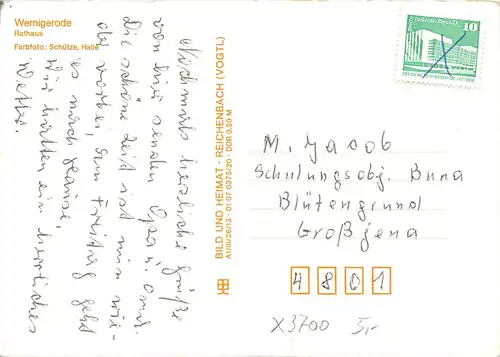 Wernigerode
Rathaus
Farbfoto: Schütze, Halle
Nochmals herzliche Grüße
von hier senden Opa u. Oma.
Die schöne Zeit ist nun wie-
der vorbei, am Freitag geht
es nach Hause,
Wir hatten ein herrliches
Wetter.
BILD UND HEIMAT · REICHENBACH (VOGTL)
A1/III/26/13 · 01 07 0375/20 · DDR 0,20 M
10
M. Jacob
Schulungsobj. Buna
Blütengrund
Großjena
4801
X3700 5,-